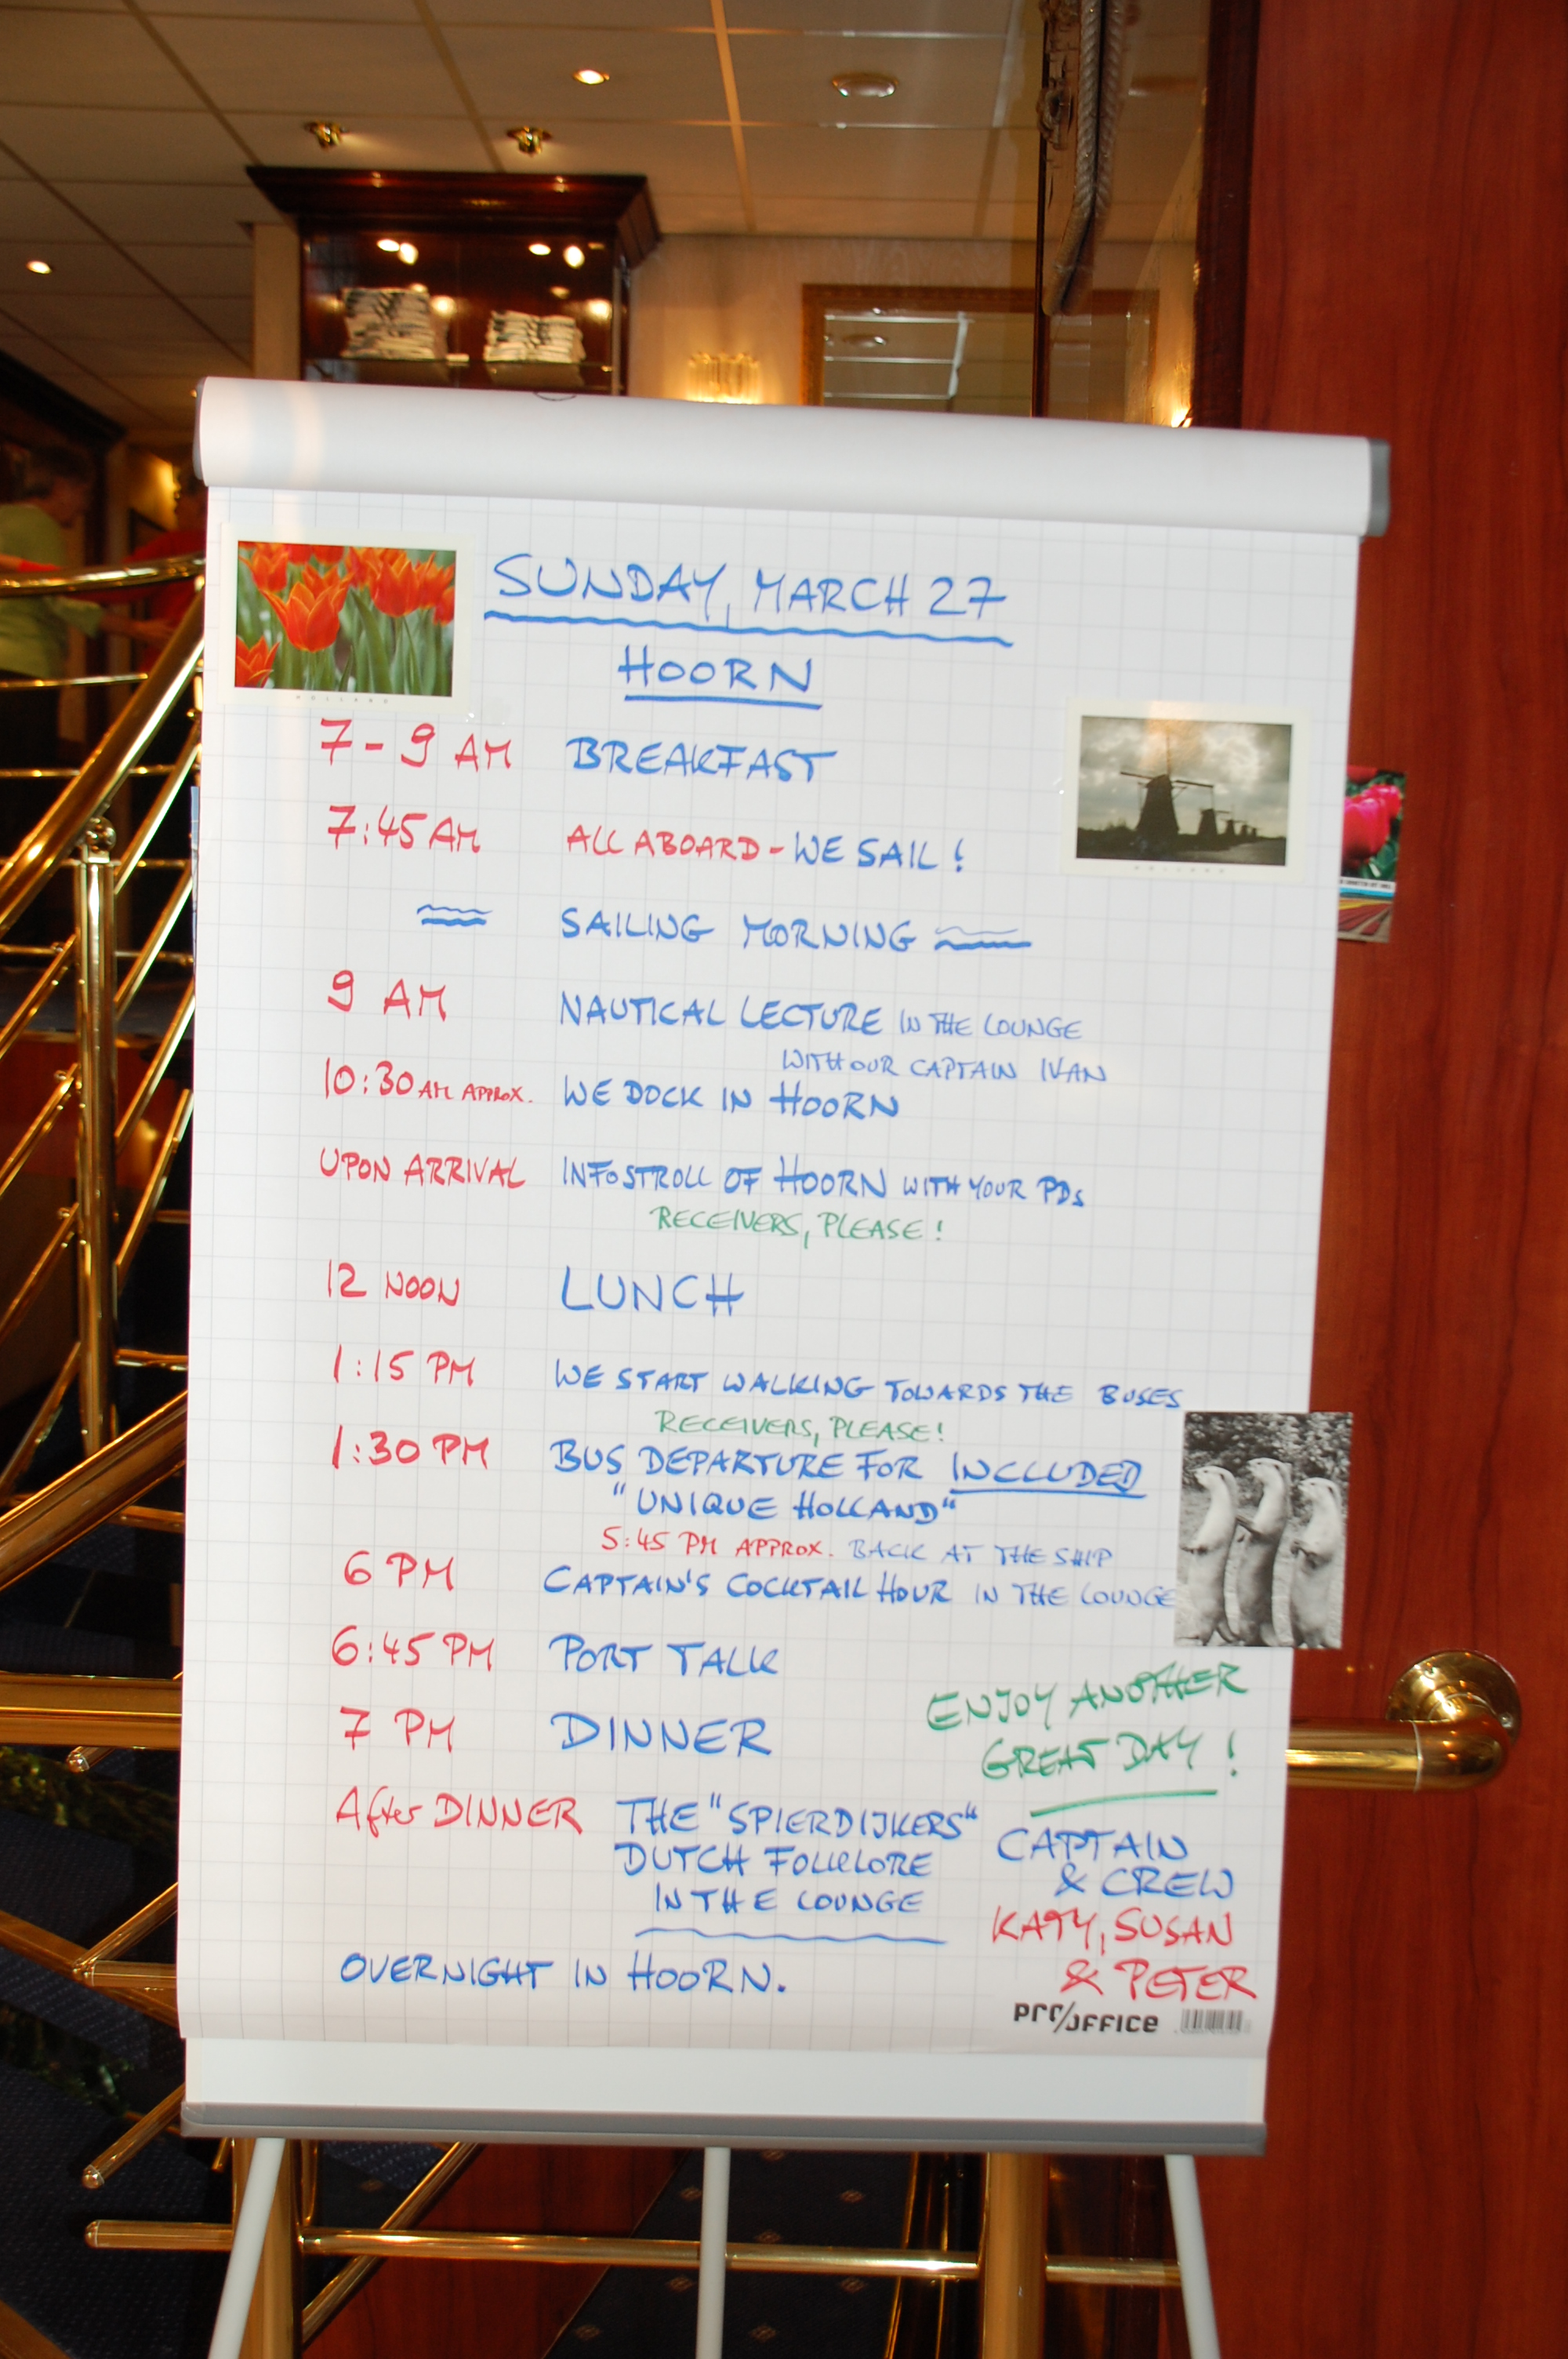 SUNDAY, MARCH 27
HOORN
7 - 9 AM BREAKFAST
7:45 AM ALL ABOARD - WE SAIL!
SAILING MORNING
9 AM NAUTICAL LECTURE IN THE LOUNGE
WITH OUR CAPTAIN IVAN
10:30 AM APPROX. WE DOCK IN HOORN
UPON ARRIVAL INFOSTROLL OF HOORN WITH YOUR PDs
RECEIVERS, PLEASE!
12 NOON LUNCH
1:15 PM WE START WALKING TOWARDS THE BUSES
RECEIVERS, PLEASE!
1:30 PM BUS DEPARTURE FOR INCLUDED
"UNIQUE HOLLAND"
5:45 PM APPROX. BACK AT THE SHIP
6 PM CAPTAIN'S COCKTAIL HOUR IN THE LOUNGE
6:45 PM PORT TALK
7 PM DINNER
ENJOY ANOTHER
GREAT DAY!
After DINNER THE "SPIERDIJKERS"
DUTCH FOLKLORE
IN THE LOUNGE
CAPTAIN
& CREW
KATY, SUSAN
& PETER
OVERNIGHT IN HOORN.
pro/office
HOLLAND
HOLLAND